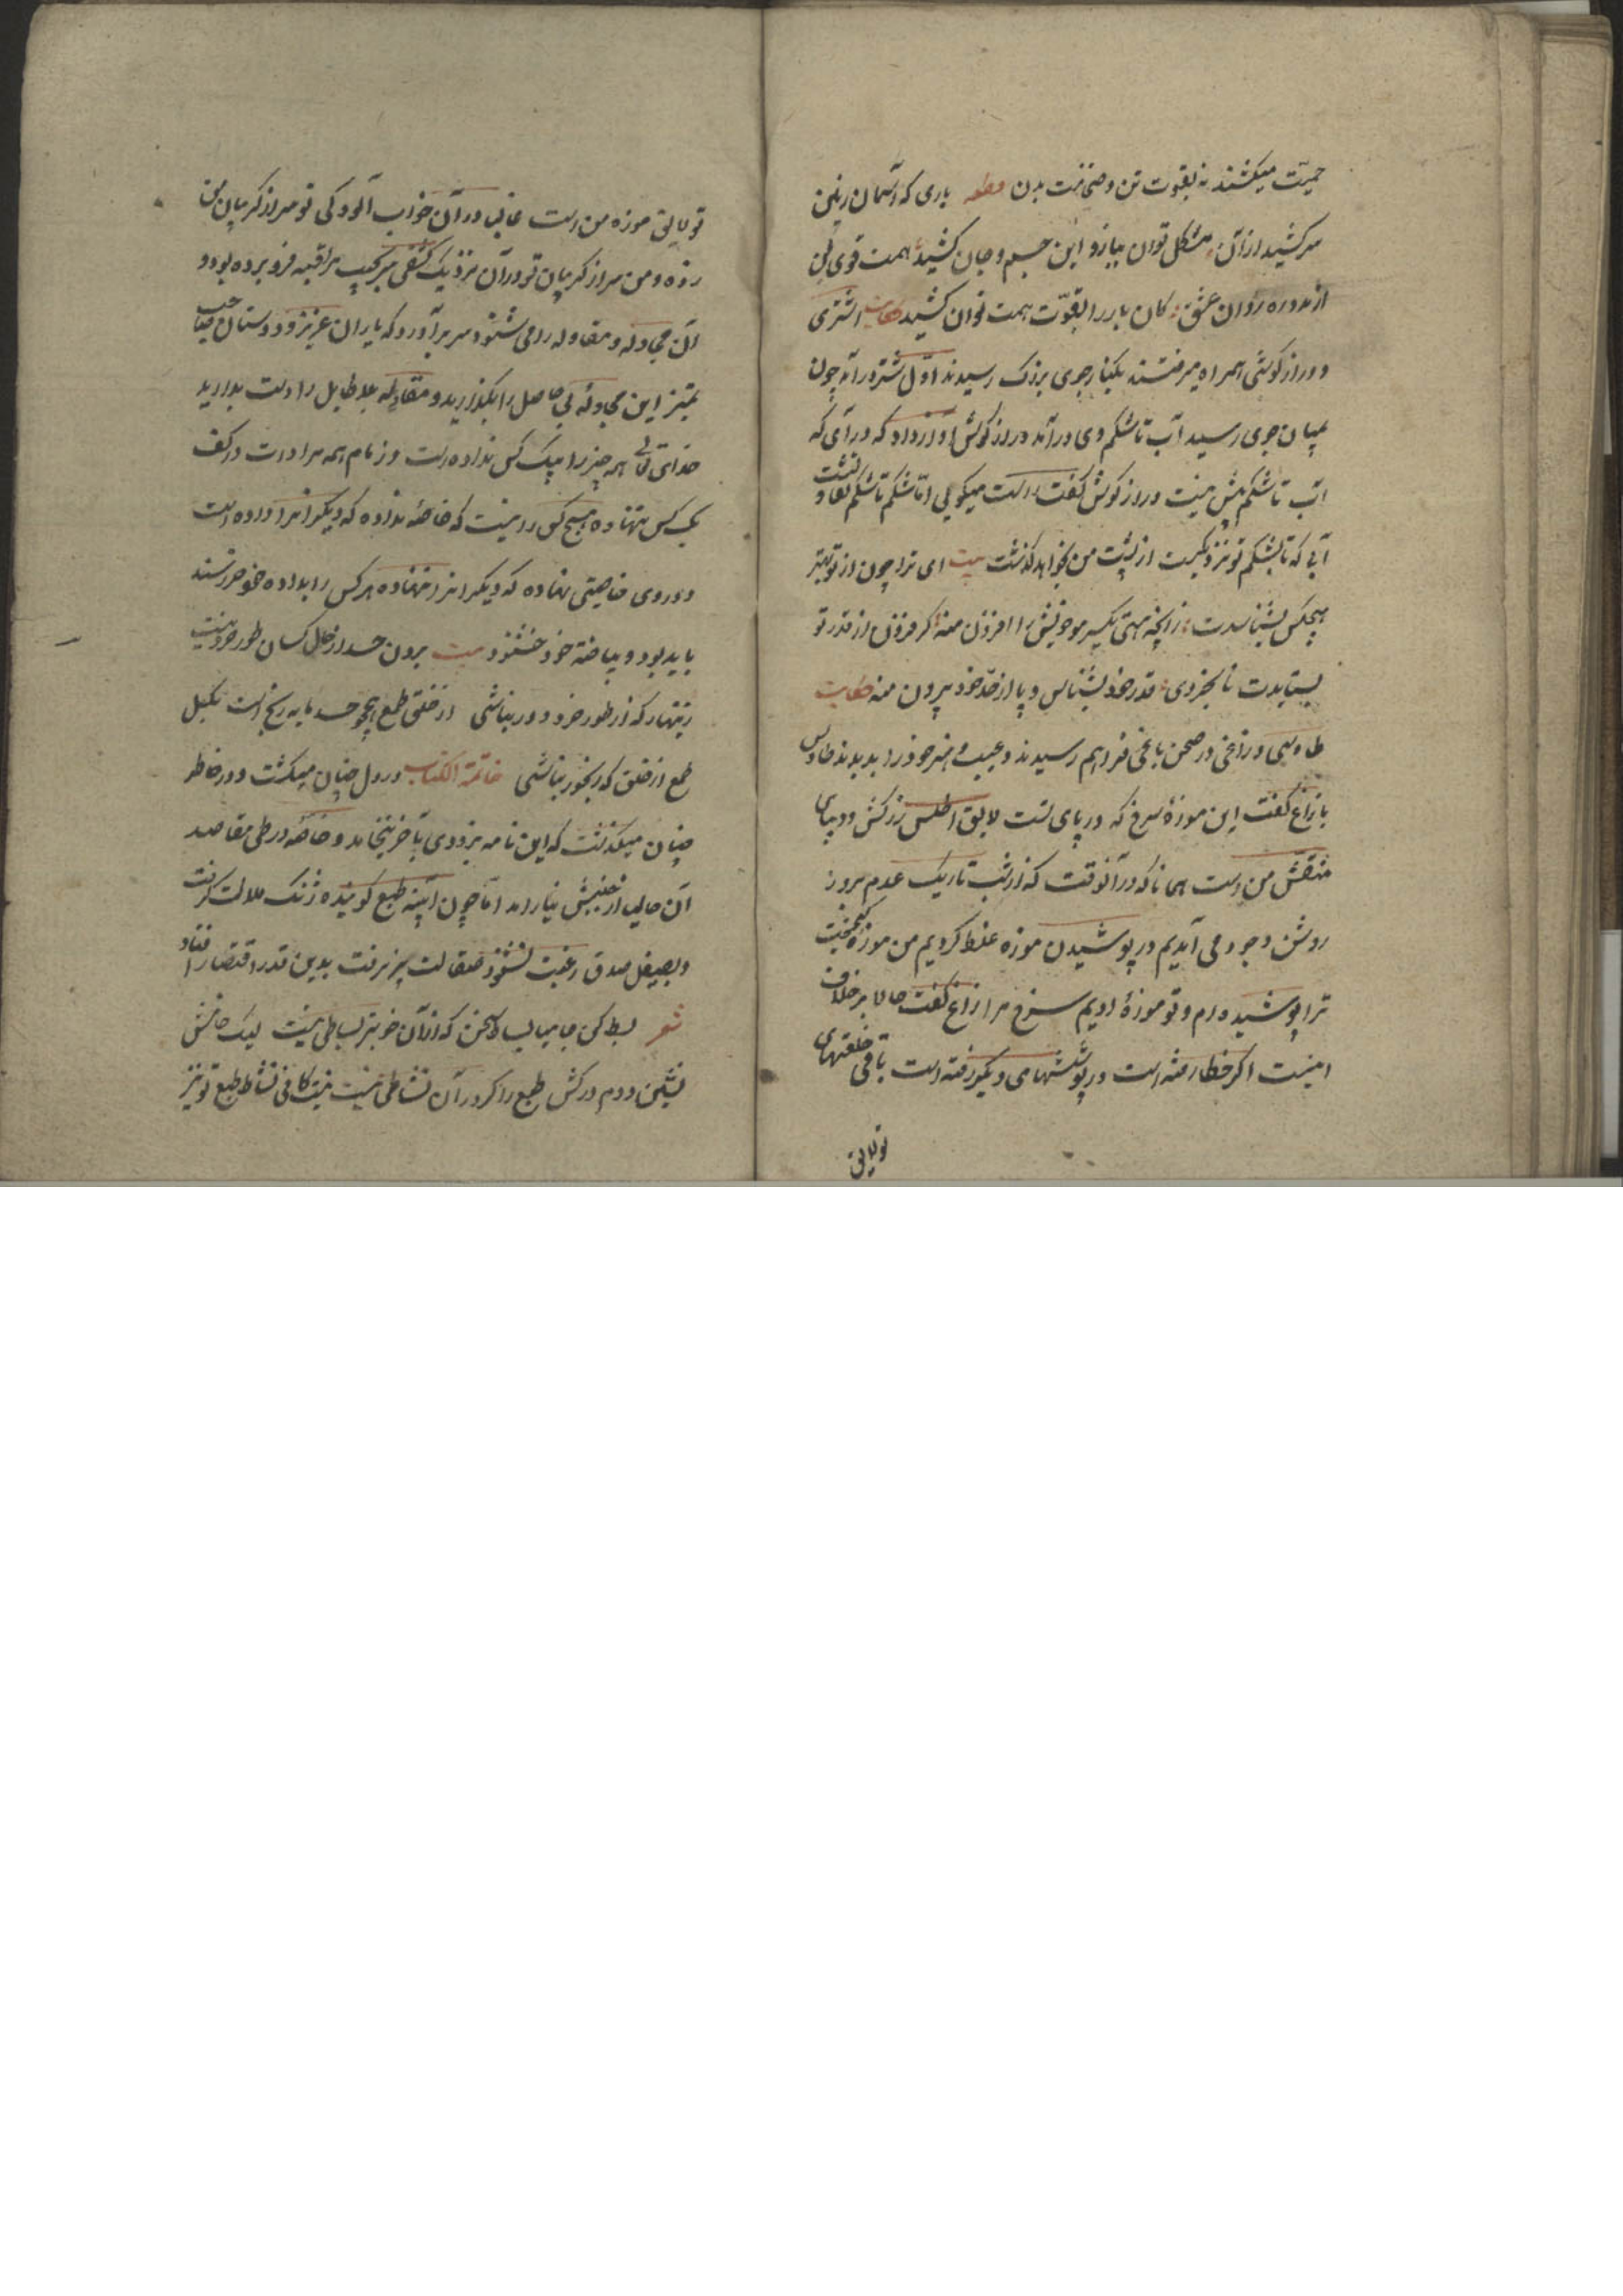 حمیت میکشند نه بقوت تن و ضخامت بدن قطعه باری که آسمان و زمین
سرکشید ازان مشکل توان ببازو این جسم و جان کشید همت قوی کن
از مدد ره روان عشق کان بار را بقوّت همت توان کشید حکایت اشتری
و درازکوشی همراه میرفتند بکنار جوی بزرک رسیدند اول شتر در آمد چون
بمیان جوی رسید آب تا شکم وی در آمد درازکوش را آواز داد که در آی که
آب تا شکم بیش نیست درازکوش کفت راست میکویی اما شکم تا شکم تفاوتست
آبی که تا بشکم تو نزدیکست از پشت من بخواهد کذشت بیت ای برادر چون از تو بهتر
هیچکس نشناسدت زانچه هستی یکسر مو خویش را افزون منه کر فزون از قدر تو
بستایدت نابخردی قدر خود بشناس و پا از حدّ خود بیرون منه حکایت
طاوسی و زاغی در صحن باغی فراهم رسیدند و عیب و هنر خود را بدیدند طاوس
با زاغ کفت این موزهٔ سرخ که در پای تست لایق اطلس زرکش و دیبای
منقش من است همانا که در آنوقت که از شب تاریک عدم بروز
روشن وجود می آمدیم در پوشیدن موزه غلط کردیم من موزهٔ کیمخت
ترا پوشیده ام و تو موزهٔ ادیم سرخ مرا زاغ کفت حال بر خلاف
اینست اکر خطا رفته است در پوششهای دیکر رفته است باقی خلعتهای
تو لایق
تو لایق موزه من است غالبا در آن خواب آلودکی تو سر از کریبان من
زده و من سر از کریبان تو در آن نزدیک کشفی سر بجیب مراقبه فرو برده بود و
آن مجادله و مقاوله را می شنود سر بر آورد که یاران عزیز و دوستان صاحب
تمیز این مجادله بی حاصل را بکذارید و مقاوله بلا طایل را دست بدارید
خدای تعالی همه چیز را بیک کس نداده است و زمام همه مرادات در کف
یک کس ننهاده هیچ کس را نیست که خاصهٔ نداده که دیکرانرا داده است
و در وی خاصیتی نهاده که دیکرانرا ننهاده هرکس را بداده خود خرسند
باید بود و بیافته خود خشنود بیت بردن حسد از حال کسان طور خرد نیست
زینهار که از طور خرد دور نباشی از خلق طمع همچو حسد مایه رنج است بکسل
طمع از خلق که رنجور نباشی خاتمة الکتاب در دل چنان میکشت و در خاطر
چنان میکذشت که این نامه بزودی بآخر نینجامد و خامه در طی مقاصد
آن حالیا از جنبش نیارامد اما چون آینه طبع کوینده زنک ملالت کرفت
و بصیقل صدق رغبت شنونده صقالت پذیرفت بدین قدر اقتصار افتاد
شعر بسط کن جامیا بساط سخن که ازان خوبتر بساطی نیست لیک خامش
نشین و دم درکش طبع را کر در آن نشاطی نیست نیست کافی نشاط طبع تو نیز